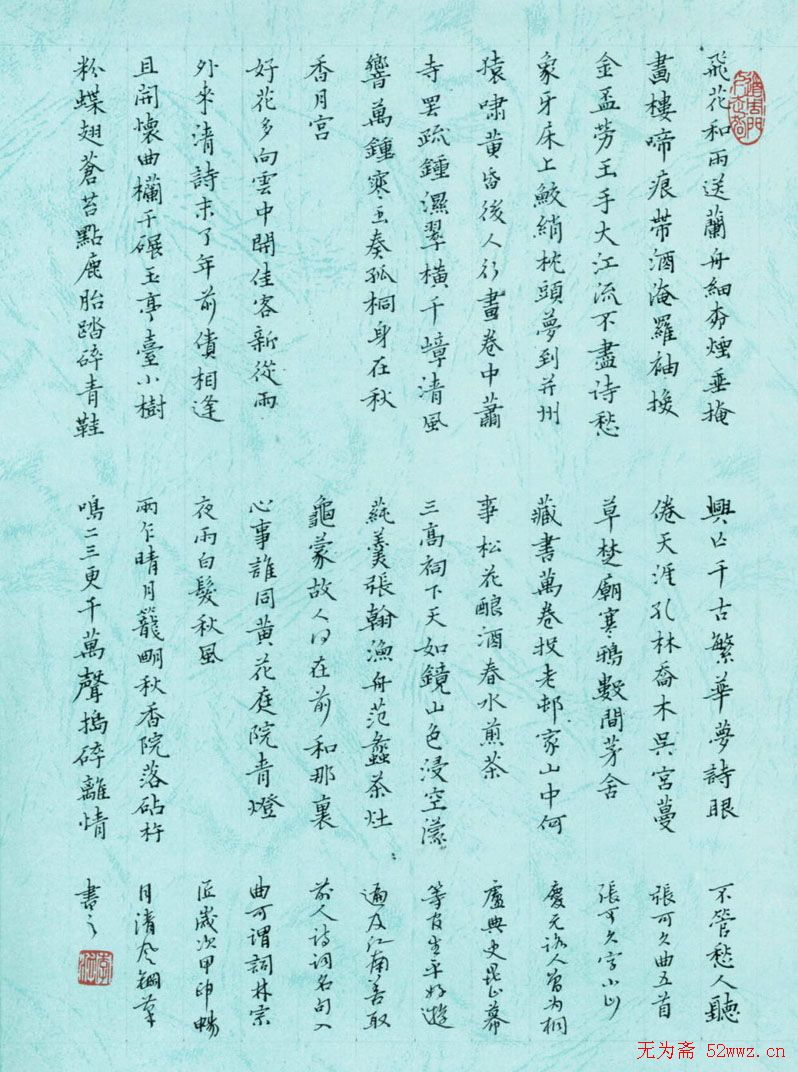 飛花和雨送蘭舟細柳煙垂掩
畫樓啼痕帶酒淹羅袖換
金盃勞玉手大江流不盡詩愁
象牙床上鮫綃枕頭夢到并州
猿嘯黄昏後人行畫卷中蕭
寺罷疏鍾濕翠橫千嶂清風
響萬鍾寒玉奏孤桐身在秋
香月宫
好花多向雲中開佳客新從雨
外來清詩未了年前債相逢
且開懷曲欄干碾玉亭臺小樹
粉蝶翅蒼苔點鹿胎踏碎青鞋
興亡千古繁華夢詩眼
倦天涯孔林喬木吳宮蔓
草楚廟寒鴉數間茅舍
藏書萬卷投老邨家山中何
事松花釀酒春水煎茶
三高祠下天如鏡山色浸空濛
蓴羹張翰漁舟范蠡茶灶
龜蒙故人何在前 和那裏
心事誰同黄花庭院青燈
夜雨白髮秋風
雨乍晴月籠明秋香院落砧杵
鳴二三更千萬聲搗碎離情
不管愁人聽
張可久曲五首
張可久字小山
慶元路人曾为桐
廬典史崑山幕
等官生平好遊
遍及江南善取
前人詩詞名句入
曲可謂詞林宗
匠歲次甲申暢
月清風鋼筆
書之
无为斋 52wwz.cn